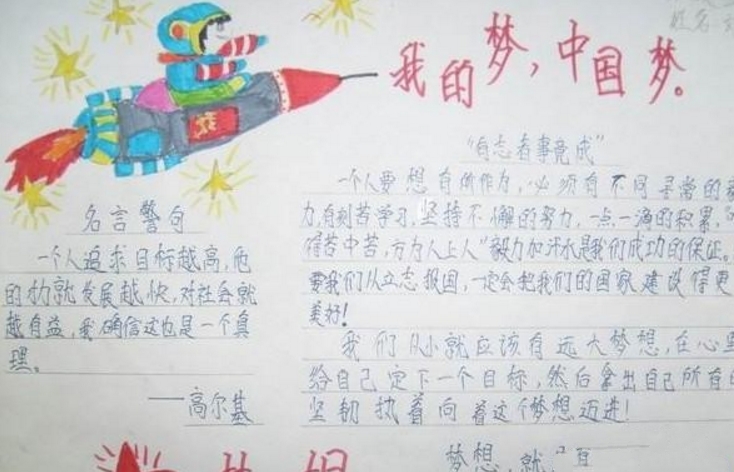 姓名
我的梦，中国梦。
“有志者事竟成”
一个人要想有所作为，必须有不同寻常的
力，有刻苦学习，坚持不懈的努力，一点一滴的积累，“
得苦中苦，方为人上人”毅力加汗水是我们成功的保证。
要我们从立志报国，一定会把我们的国家建设得更
美好！
我们从小就应该有远大梦想，在心里
给自己定下一个目标，然后拿出自己所有
坚韧执着向着这个梦想迈进！
名言警句
一个人追求目标越高，他
的才就发展越快，对社会就
越有益，我确信这也是一个真
理。
——高尔基
梦想就